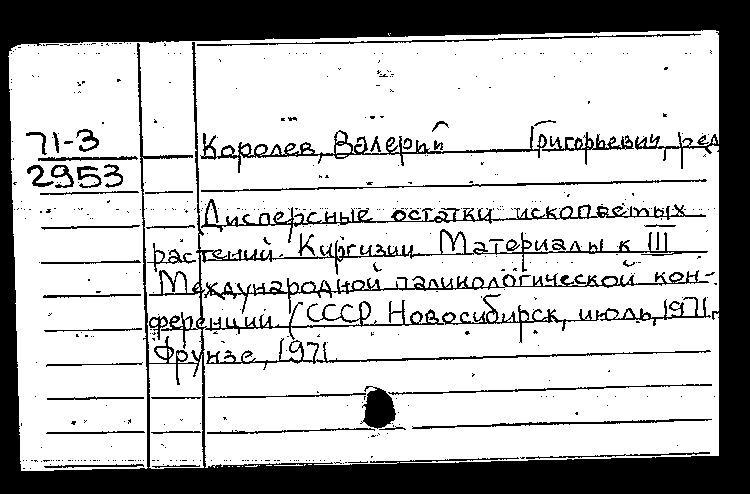 71-3
2953
Королев, Валерий Григорьевич, ред
Дисперсные остатки ископаемых
растений Киргизии. Материалы к III
Международной палинологической кон-
ференции. (СССР. Новосибирск, июль, 1971г.
Фрунзе, 1971.